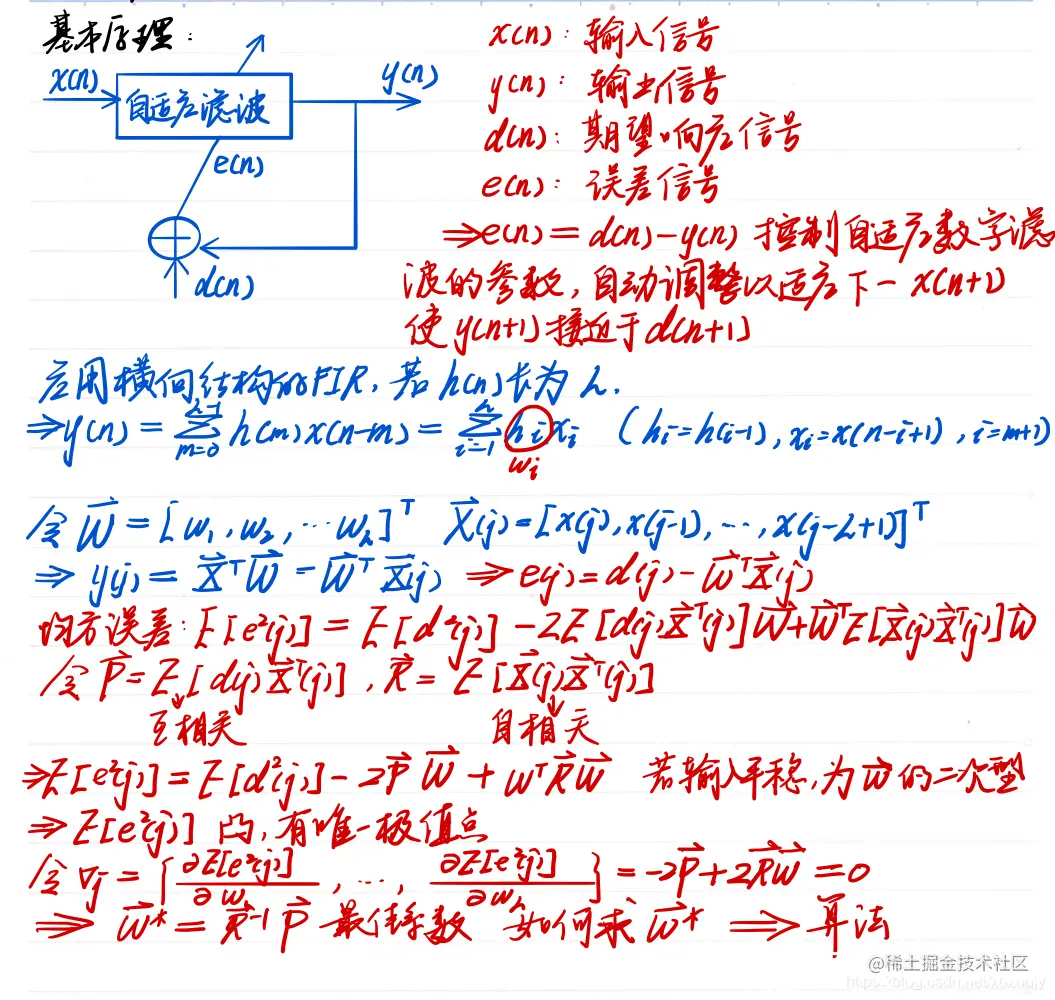 基本原理：
x(n)
自适应滤波
y(n)
e(n)
d(n)
x(n)：输入信号
y(n)：输出信号
d(n)：期望响应信号
e(n)：误差信号
⇒e(n) = d(n)-y(n) 控制自适应数字滤
波的参数，自动调整以适应下一 x(n+1)
使 y(n+1) 接近于 d(n+1)
应用横向结构的FIR，若 h(n) 长为 L.
⇒y(n) = ∑_{m=0}^{L-1} h(m) x(n-m) = ∑_{i=1}^{L} h_i x_i （h_i=h(i-1), x_i=x(n-i+1), i=m+1）
w_i
令 W⃗ = [w₁, w₂, ⋯ w_L]ᵀ X⃗(j)=[x(j), x(j-1), ⋯, x(j-L+1)]ᵀ
⇒ y(j) = X⃗ᵀW⃗ = W⃗ᵀX⃗(j) ⇒ e(j) = d(j) - W⃗ᵀX⃗(j)
均方误差：E[e²(j)] = E[d²(j)] - 2E[d(j)X⃗ᵀ(j)]W⃗ + W⃗ᵀE[X⃗(j)X⃗ᵀ(j)]W⃗
令 P⃗ = E[d(j)X⃗ᵀ(j)], R⃗ = E[X⃗(j)X⃗ᵀ(j)]
互相关 自相关
⇒E[e²(j)] = E[d²(j)] - 2P⃗ W⃗ + wᵀR⃗W⃗ 若输入平稳，为 w⃗ 的二次型
⇒ E[e²(j)] 凸，有唯一极值点
令 ∇j = {∂E[e²(j)]/∂w₁, ⋯, ∂E[e²(j)]/∂w_L} = -2P⃗ + 2R⃗W⃗ = 0
⇒ w⃗* = R⃗⁻¹P⃗ 最佳系数 如何求 w⃗* ⇒ 算法
@稀土掘金技术社区